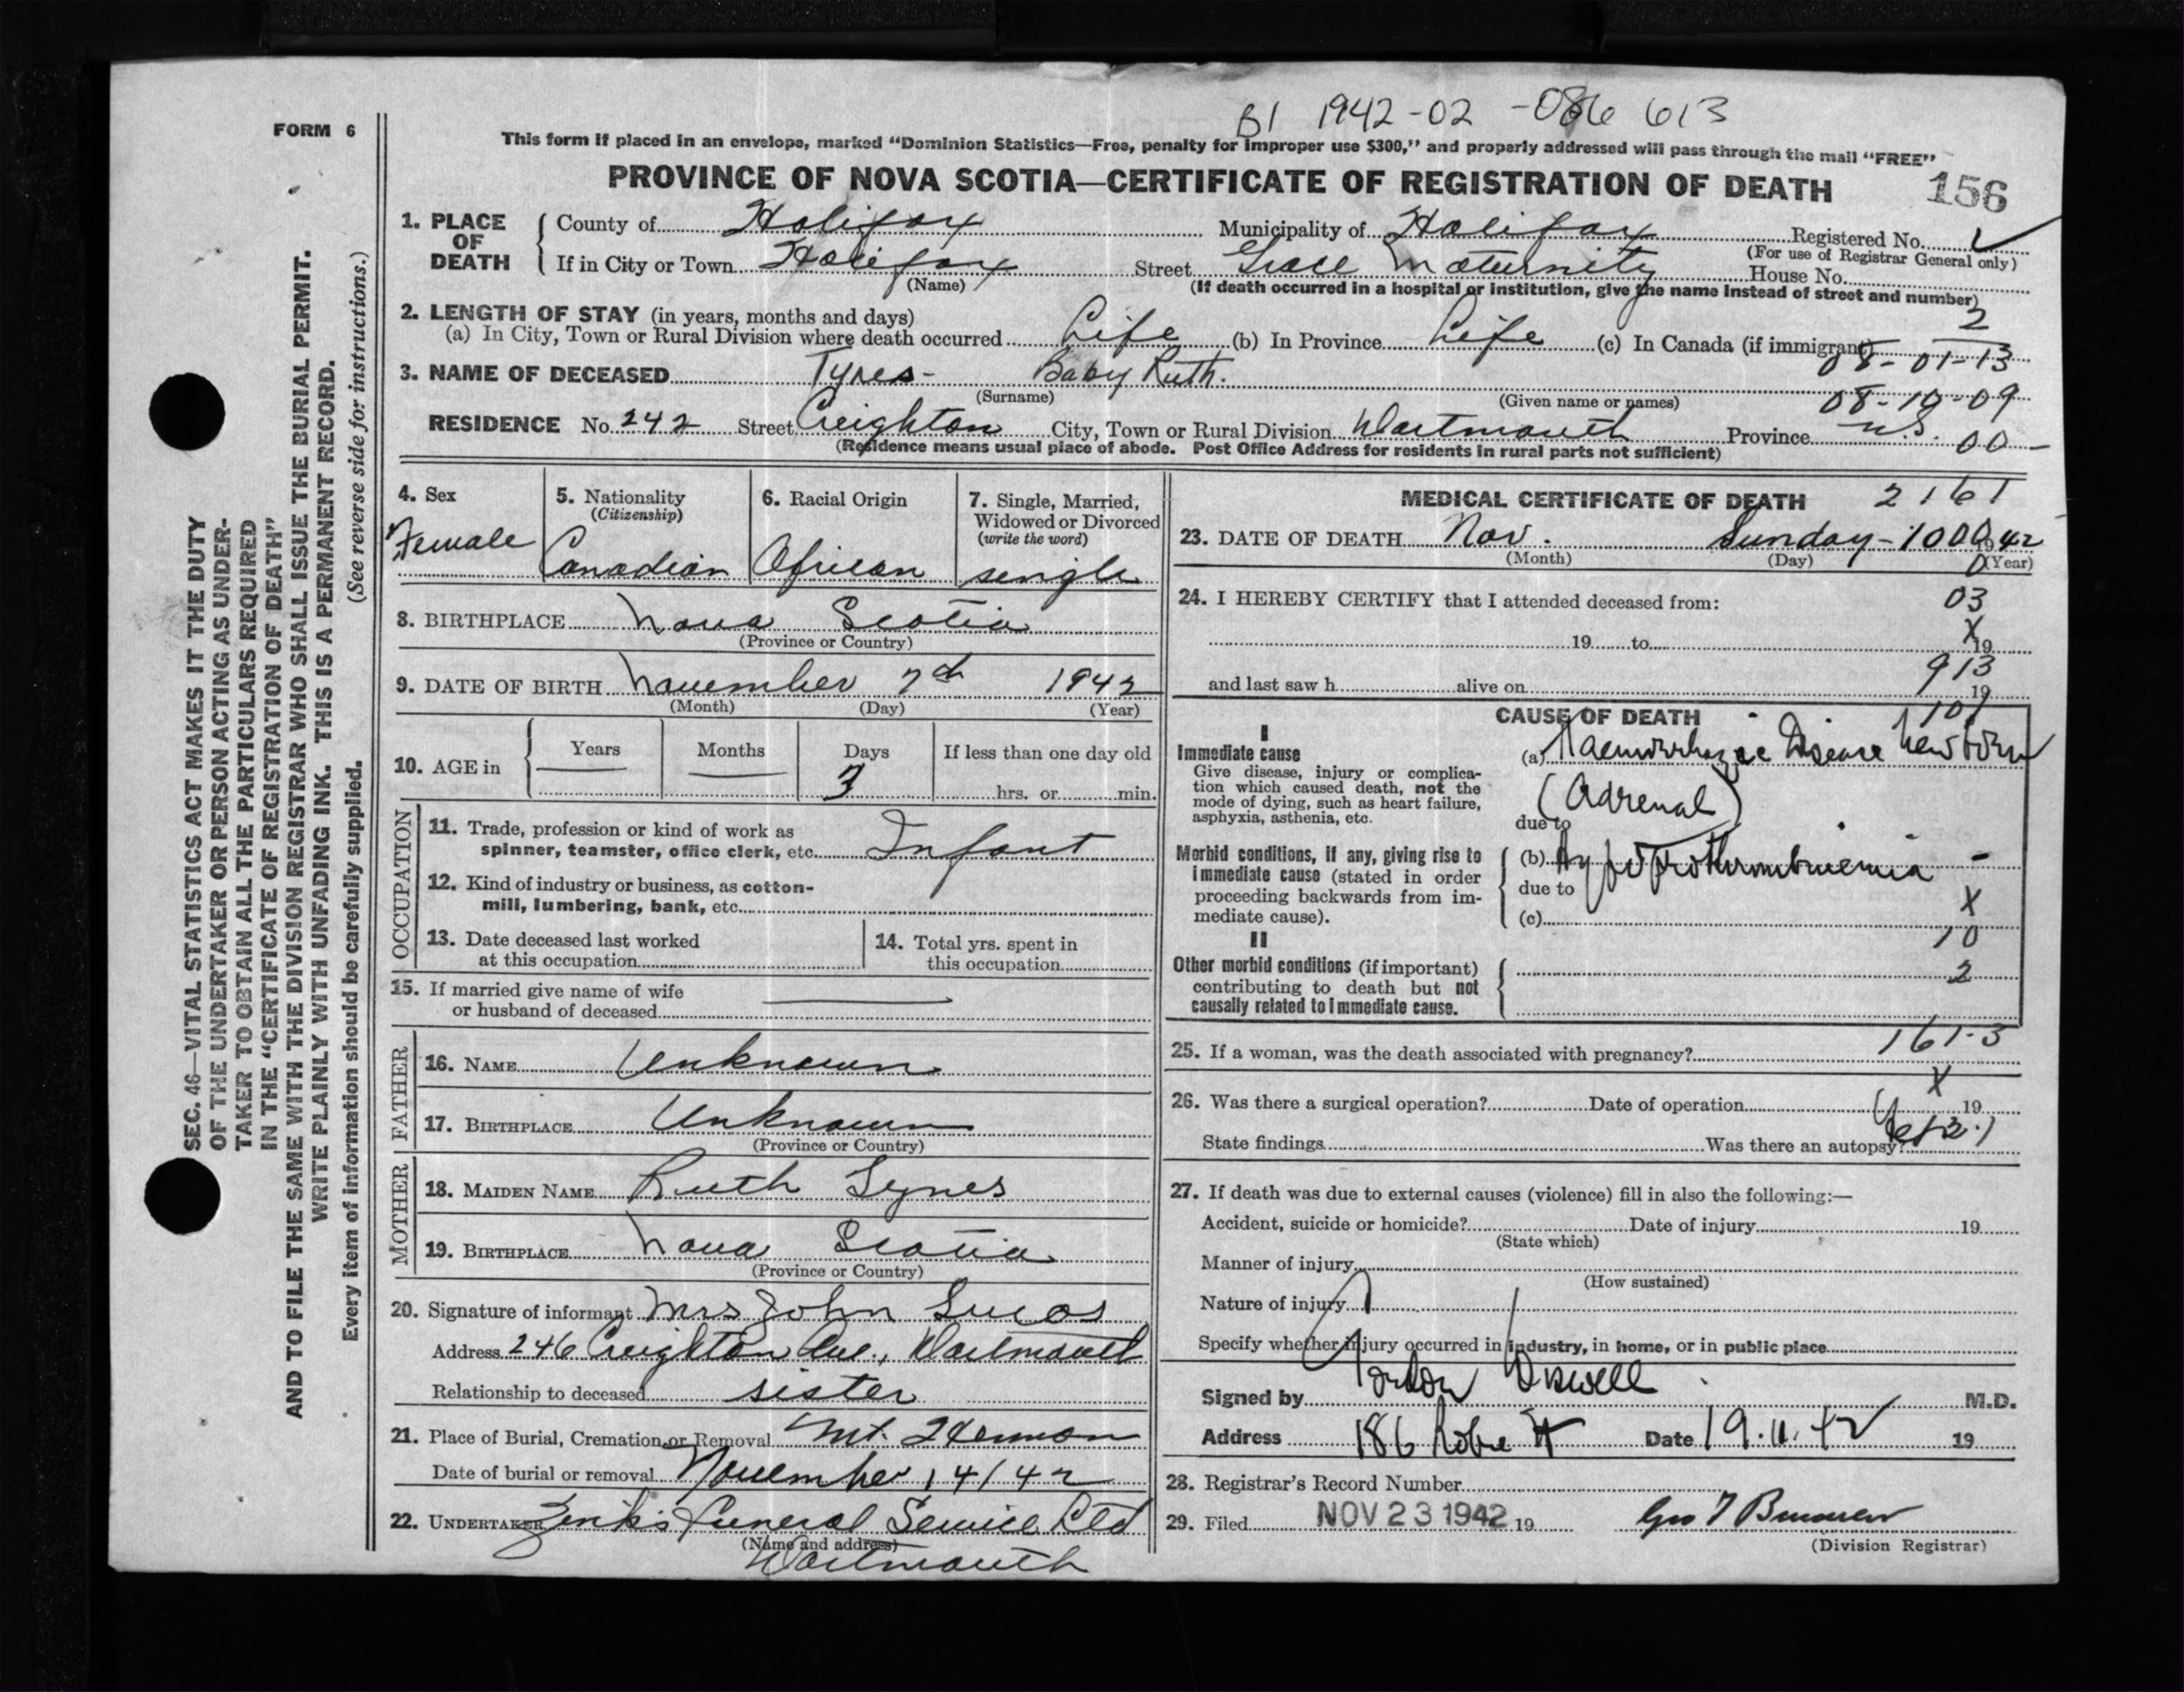 B1 1942-02-086613
FORM 6
This form if placed in an envelope, marked "Dominion Statistics—Free, penalty for improper use $300," and properly addressed will pass through the mail "FREE"
PROVINCE OF NOVA SCOTIA—CERTIFICATE OF REGISTRATION OF DEATH 156
1. PLACE OF DEATH
County of Halifax Municipality of Halifax Registered No.
(For use of Registrar General only)
If in City or Town Halifax Street Grace Maternity House No.
(Name) (If death occurred in a hospital or institution, give the name instead of street and number)
2. LENGTH OF STAY (in years, months and days) 2
(a) In City, Town or Rural Division where death occurred Life (b) In Province Life (c) In Canada (if immigrant)
08-01-13
3. NAME OF DECEASED Tynes - Baby Ruth.
(Surname) (Given name or names) 08-10-09
RESIDENCE No. 242 Street Creighton City, Town or Rural Division Dartmouth Province N.S. 00
(Residence means usual place of abode. Post Office Address for residents in rural parts not sufficient)
4. Sex
Female
5. Nationality
(Citizenship)
Canadian
6. Racial Origin
African
7. Single, Married,
Widowed or Divorced
(write the word)
single
8. BIRTHPLACE Nova Scotia
(Province or Country)
9. DATE OF BIRTH November 7th 1942
(Month) (Day) (Year)
10. AGE in
Years Months Days If less than one day old
3 hrs. or min.
OCCUPATION
11. Trade, profession or kind of work as
spinner, teamster, office clerk, etc. Infant
12. Kind of industry or business, as cotton-
mill, lumbering, bank, etc.
13. Date deceased last worked
at this occupation
14. Total yrs. spent in
this occupation
15. If married give name of wife
or husband of deceased
FATHER
16. NAME Unknown
17. BIRTHPLACE Unknown
(Province or Country)
MOTHER
18. MAIDEN NAME Ruth Tynes
19. BIRTHPLACE Nova Scotia
(Province or Country)
20. Signature of informant Mrs John Lucas
Address 246 Creighton Ave., Dartmouth
Relationship to deceased sister
21. Place of Burial, Cremation or Removal Mt. Hermon
Date of burial or removal November 14/42
22. UNDERTAKER Zink's Funeral Service Ltd
(Name and address)
Dartmouth
MEDICAL CERTIFICATE OF DEATH 2161
23. DATE OF DEATH Nov. Sunday - 10 1942
(Month) (Day) (Year)
24. I HEREBY CERTIFY that I attended deceased from: 03
19 to X 19
913
and last saw h alive on 19
107
CAUSE OF DEATH
I
Immediate cause
Give disease, injury or complica-
tion which caused death, not the
mode of dying, such as heart failure,
asphyxia, asthenia, etc.
(a) Haemorrhagic Disease Newborn
(Adrenal)
due to
Morbid conditions, if any, giving rise to
immediate cause (stated in order
proceeding backwards from im-
mediate cause).
(b) Hypoprothrombinemia -
due to
X
(c)
10
II
Other morbid conditions (if important)
contributing to death but not
causally related to immediate cause.
2
161-3
25. If a woman, was the death associated with pregnancy?
X
26. Was there a surgical operation? Date of operation 19
State findings Was there an autopsy? Yes
27. If death was due to external causes (violence) fill in also the following:—
Accident, suicide or homicide? Date of injury 19
(State which)
Manner of injury
(How sustained)
Nature of injury
Specify whether injury occurred in industry, in home, or in public place
Signed by M.D.
Address 186 Date 19.11.42 19
28. Registrar's Record Number
29. Filed NOV 23 1942 19
(Division Registrar)
SEC. 46—VITAL STATISTICS ACT MAKES IT THE DUTY
OF THE UNDERTAKER OR PERSON ACTING AS UNDER-
TAKER TO OBTAIN ALL THE PARTICULARS REQUIRED
IN THE "CERTIFICATE OF REGISTRATION OF DEATH"
AND TO FILE THE SAME WITH THE DIVISION REGISTRAR WHO SHALL ISSUE THE BURIAL PERMIT.
WRITE PLAINLY WITH UNFADING INK. THIS IS A PERMANENT RECORD.
Every item of information should be carefully supplied. (See reverse side for instructions.)